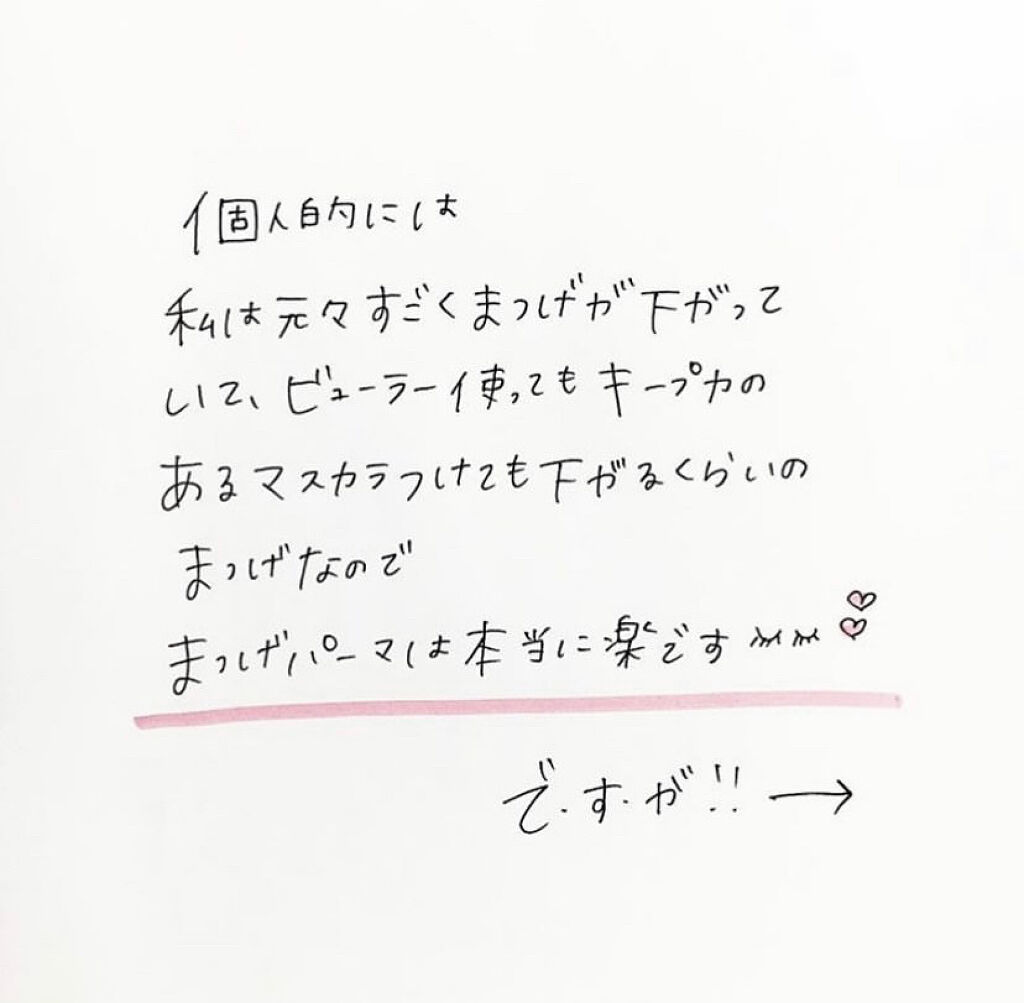 個人的には
私は元々すごくまつげが下がって
いて、ビューラー使ってもキープ力の
あるマスカラつけても下がるくらいの
まつげなので
まつげパーマは本当に楽です
で.す.が!! →